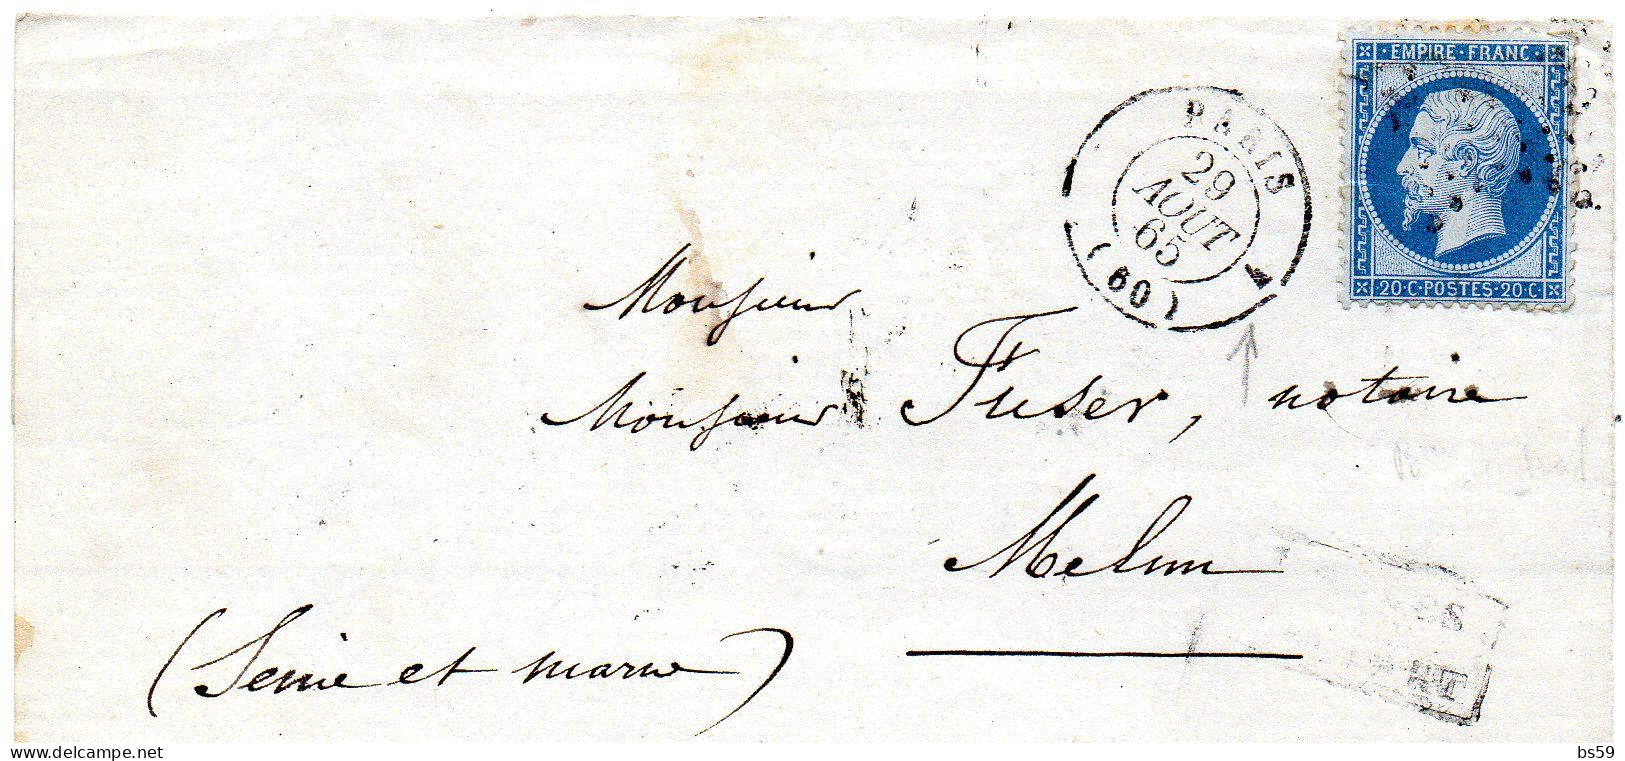 EMPIRE·FRANC·
20·C·POSTES·20·C·
PARIS
29
AOUT
65
(60)
Monsieur
Monsieur Fuser, notaire
Melun
(Seine et marne)
www.delcampe.net
bs59